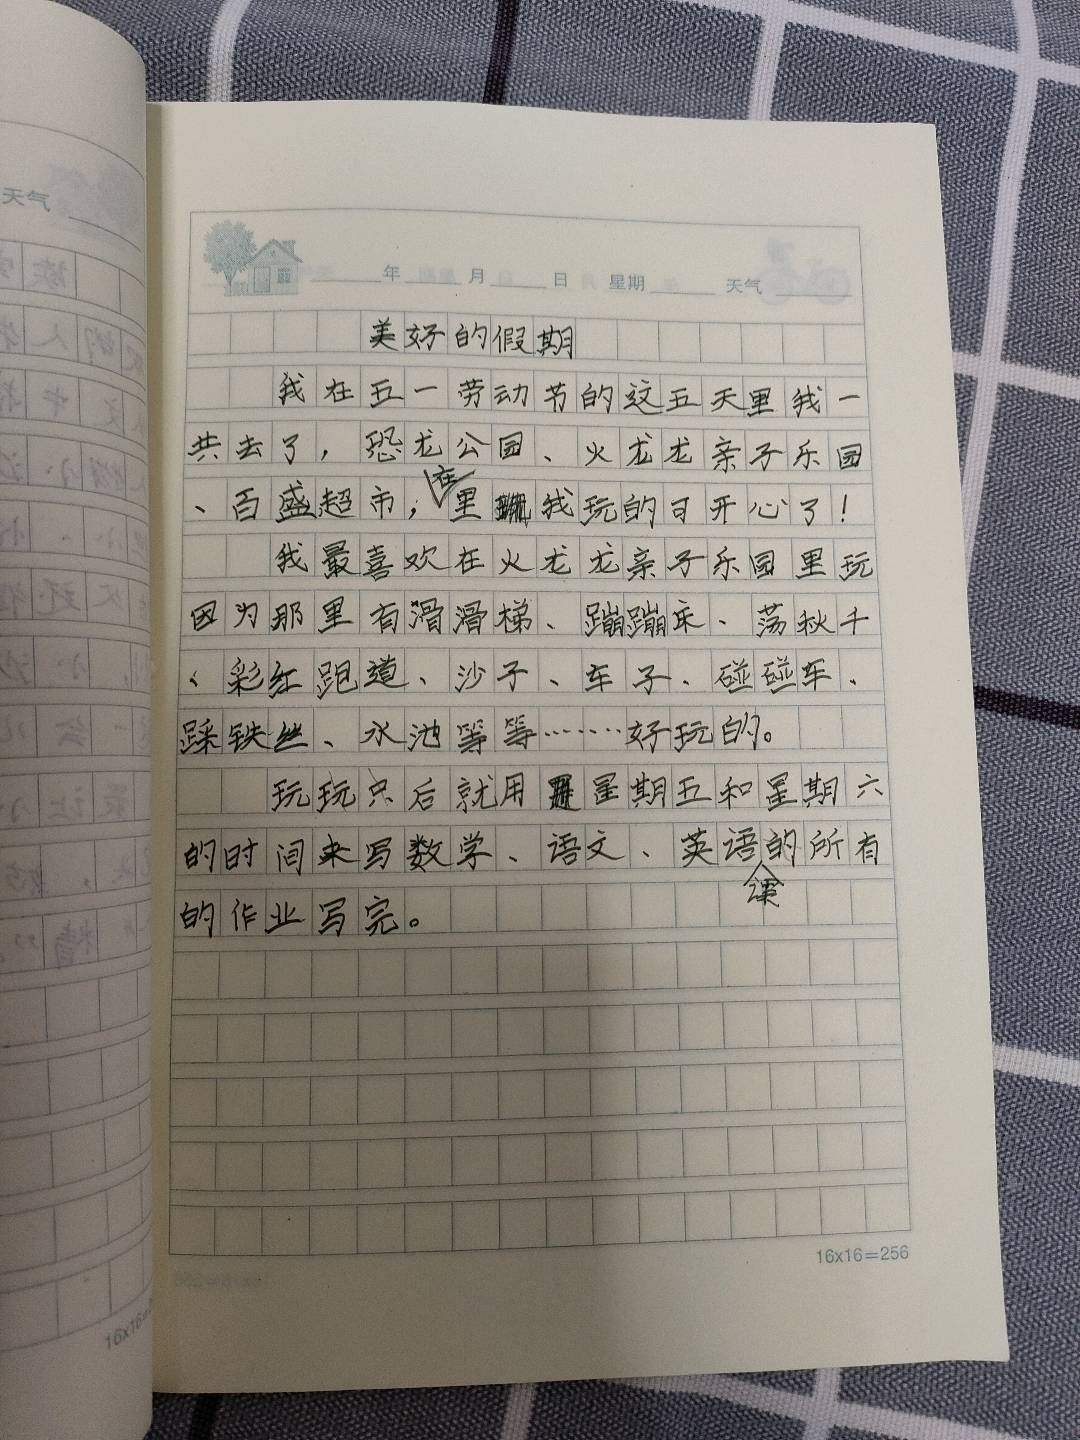 天气
年 月 日 星期 天气
美好的假期
我在五一劳动节的这五天里我一
共去了，恐龙公园、火龙龙亲子乐园
、百盛超市，在里我玩的可开心了！
我最喜欢在火龙龙亲子乐园里玩
因为那里有滑滑梯、蹦蹦乐、荡秋千
、彩红跑道、沙子、车子、碰碰车、
踩铁丝、水池等等……好玩的。
玩玩只后就用星期五和星期六
的时间来写数学、语文、英语课的所有
的作业写完。
16x16=256
16x16=